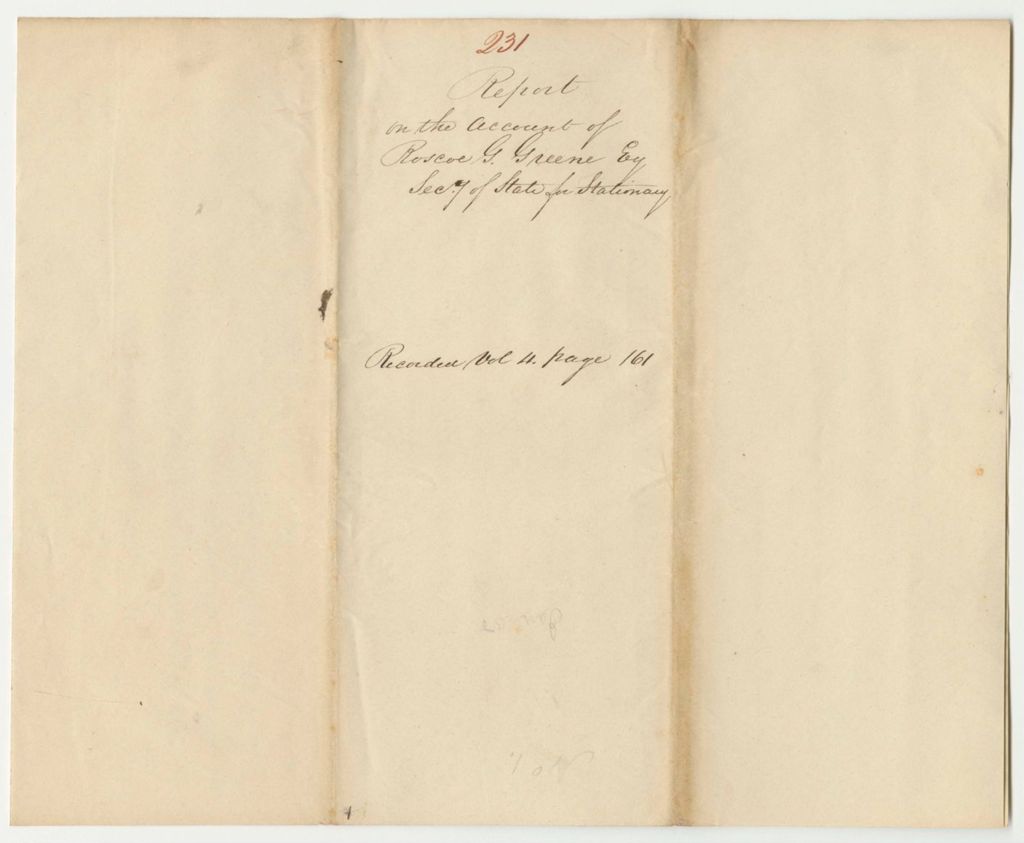 231
Report
on the Account of
Roscoe G. Greene Esq
Secy of State for Stationary
Recorded Vol 4. page 161